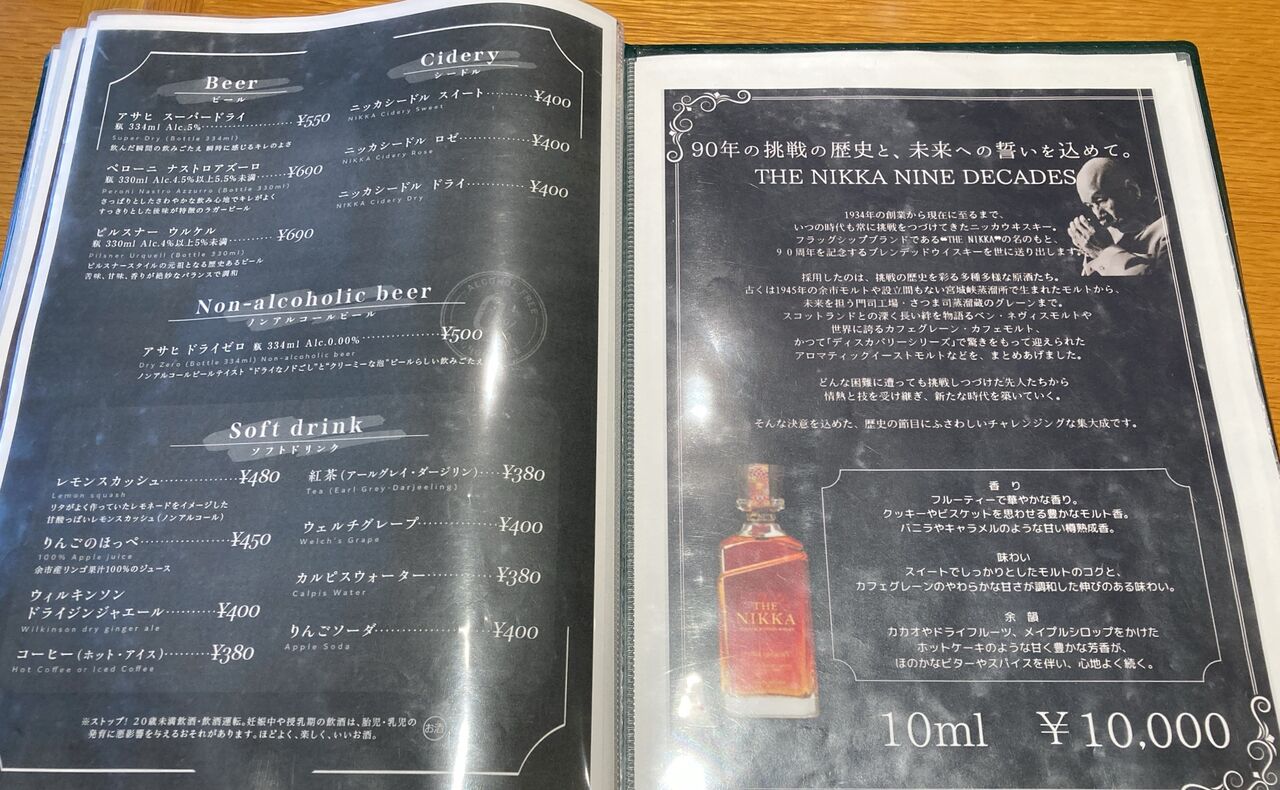 Beer
ビール
アサヒ スーパードライ
瓶 334ml Alc.5%…………¥550
Super Dry (Bottle 334ml)
飲んだ瞬間の飲みごたえ 瞬時に感じるキレのよさ
ペローニ ナストロアズーロ
瓶 330ml Alc.4.5%以上5.5%未満……¥690
Peroni Nastro Azzurro (Bottle 330ml)
さっぱりとしたさわやかな飲み心地でキレがよく
すっきりとした後味が特徴のラガービール
ピルスナー ウルケル
瓶 330ml Alc.4%以上5%未満………¥690
Pilsner Urquell (Bottle 330ml)
ピルスナースタイルの元祖となる歴史あるビール
苦味、甘味、香りが絶妙なバランスで調和
Cidery
シードル
ニッカシードル スイート……¥400
NIKKA Cidery Sweet
ニッカシードル ロゼ…………¥400
NIKKA Cidery Rose
ニッカシードル ドライ…………¥400
NIKKA Cidery Dry
Non-alcoholic beer
ノンアルコールビール
アサヒ ドライゼロ 瓶 334ml Alc.0.00%…………¥500
Dry Zero (Bottle 334ml) Non-alcoholic beer
ノンアルコールビールテイスト “ドライなノドごし”と“クリーミーな泡”ビールらしい飲みごたえ
Soft drink
ソフトドリンク
レモンスカッシュ…………¥480
Lemon squash
リタがよく作っていたレモネードをイメージした
甘酸っぱいレモンスカッシュ(ノンアルコール)
りんごのほっぺ…………¥450
100% Apple juice
余市産リンゴ果汁100%のジュース
ウィルキンソン
ドライジンジャエール…………¥400
Wilkinson dry ginger ale
コーヒー(ホット・アイス)……¥380
Hot Coffee or Iced Coffee
紅茶(アールグレイ・ダージリン)…¥380
Tea (Earl Grey·Darjeeling)
ウェルチグレープ…………¥400
Welch's Grape
カルピスウォーター…………¥380
Calpis Water
りんごソーダ…………¥400
Apple Soda
※ストップ! 20歳未満飲酒・飲酒運転。妊娠中や授乳期の飲酒は、胎児・乳児の
発育に悪影響を与えるおそれがあります。ほどよく、楽しく、いいお酒。
お酒
90年の挑戦の歴史と、未来への誓いを込めて。
THE NIKKA NINE DECADES
1934年の創業から現在に至るまで、
いつの時代も常に挑戦をつづけてきたニッカウヰスキー。
フラッグシップブランドである“THE NIKKA”の名のもと、
90周年を記念するブレンデッドウイスキーを世に送り出します。
採用したのは、挑戦の歴史を彩る多種多様な原酒たち。
古くは1945年の余市モルトや設立間もない宮城峡蒸溜所で生まれたモルトから、
未来を担う門司工場・さつま司蒸溜蔵のグレーンまで。
スコットランドとの深く長い絆を物語るベン・ネヴィスモルトや
世界に誇るカフェグレーン・カフェモルト、
かつて「ディスカバリーシリーズ」で驚きをもって迎えられた
アロマティックイーストモルトなどを、まとめあげました。
どんな困難に遭っても挑戦しつづけた先人たちから
情熱と技を受け継ぎ、新たな時代を築いていく。
そんな決意を込めた、歴史の節目にふさわしいチャレンジングな集大成です。
THE
NIKKA
香り
フルーティーで華やかな香り。
クッキーやビスケットを思わせる豊かなモルト香。
バニラやキャラメルのような甘い樽熟成香。
味わい
スイートでしっかりとしたモルトのコクと、
カフェグレーンのやわらかな甘さが調和した伸びのある味わい。
余韻
カカオやドライフルーツ、メイプルシロップをかけた
ホットケーキのような甘く豊かな芳香が、
ほのかなビターやスパイスを伴い、心地よく続く。
10ml ￥10,000